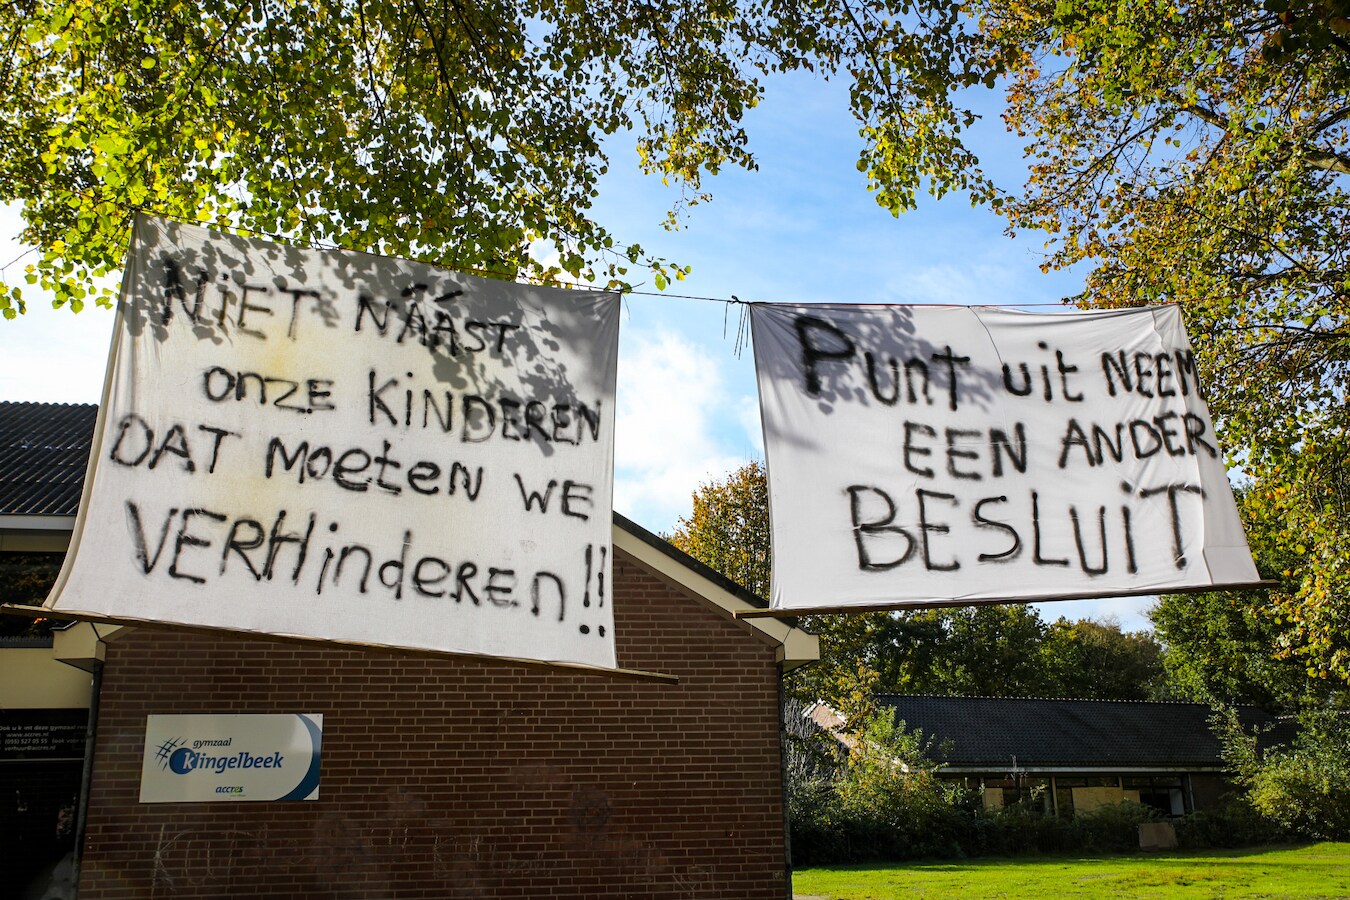 NiET NÁÁST
onZE KiNDEREN
DAT MOEtEN WE
VERHindEREn!!
PUnT uit NEEM
EEN ANDER
BESLUiT
gymzaal
klingelbeek
accres
Ook u k
dit deze gymzaal
www.accres.nl
(055) 527 05 55
verhuur@accres.nl